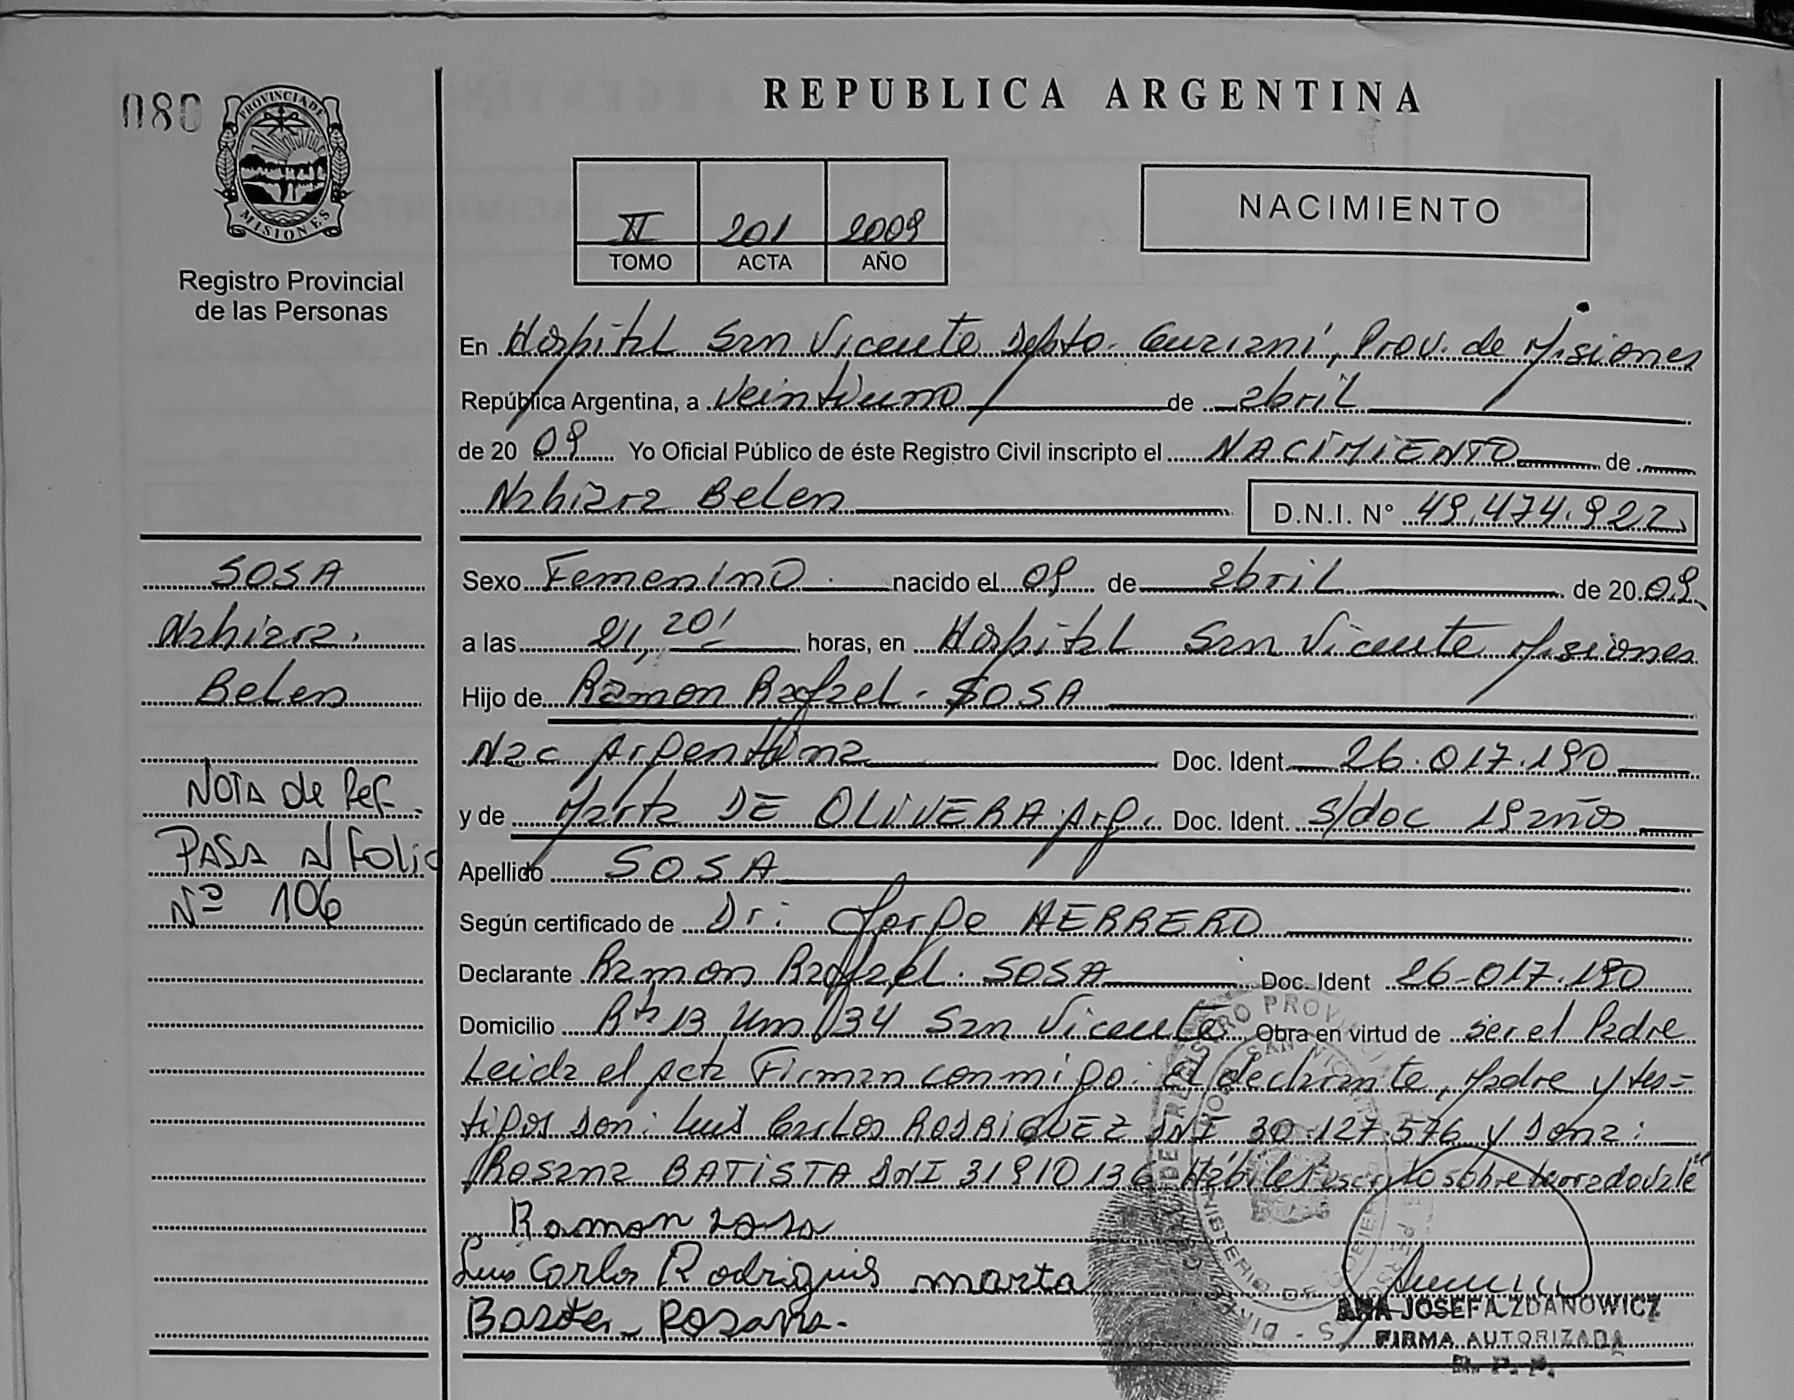 080
PROVINCIA DE
MISIONES
Registro Provincial
de las Personas
REPUBLICA ARGENTINA
II 201 2009
TOMO ACTA AÑO
NACIMIENTO
En Hospital San Vicente Depto. Guarani, Prov. de Misiones
República Argentina, a veintiuno de abril
de 20 09 Yo Oficial Público de éste Registro Civil inscripto el NACIMIENTO de
Nahiara Belen D.N.I. N° 49.474.922
Sexo Femenino nacido el 09 de abril de 20 09
a las 21,20' horas, en Hospital San Vicente Misiones
Hijo de Ramon Rafael - SOSA
Nac Argentina Doc. Ident. 26.017.190
y de Marta DE OLIVERA Arg. Doc. Ident. s/doc 19 años
Apellido SOSA
Según certificado de Dr: Jorge HERRERO
Declarante Ramon Rafael. SOSA Doc. Ident 26-017.190
Domicilio Rta 13 Km 134 San Vicente Obra en virtud de ser el Padre
Leida el acta Firman conmigo: El declarante, Madre y tes=
tigos Don: Luis Carlos RODRIGUEZ DNI 30.127.576 y Dona:
Rosana BATISTA DNI 31910136 Hábiles escrito sobre borrado vale"
Ramon sosa
Luis Carlos Rodriguis marta
Rosana.
SOSA
Nahiara.
Belen
NOTA de Ref.
PASA al Folio
Nº 106
ANA JOSEFA ZDANOWICZ
FIRMA AUTORIZADA
R. P. P.